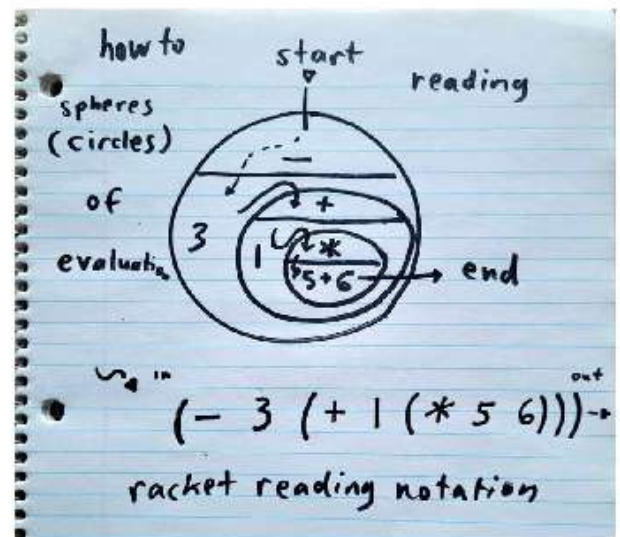 how to
start
reading
spheres
(circles)
of
evaluation
−
3
+
1
*
5 → 6
end
in
out
(− 3 (+ 1 (* 5 6)))→
racket reading notation